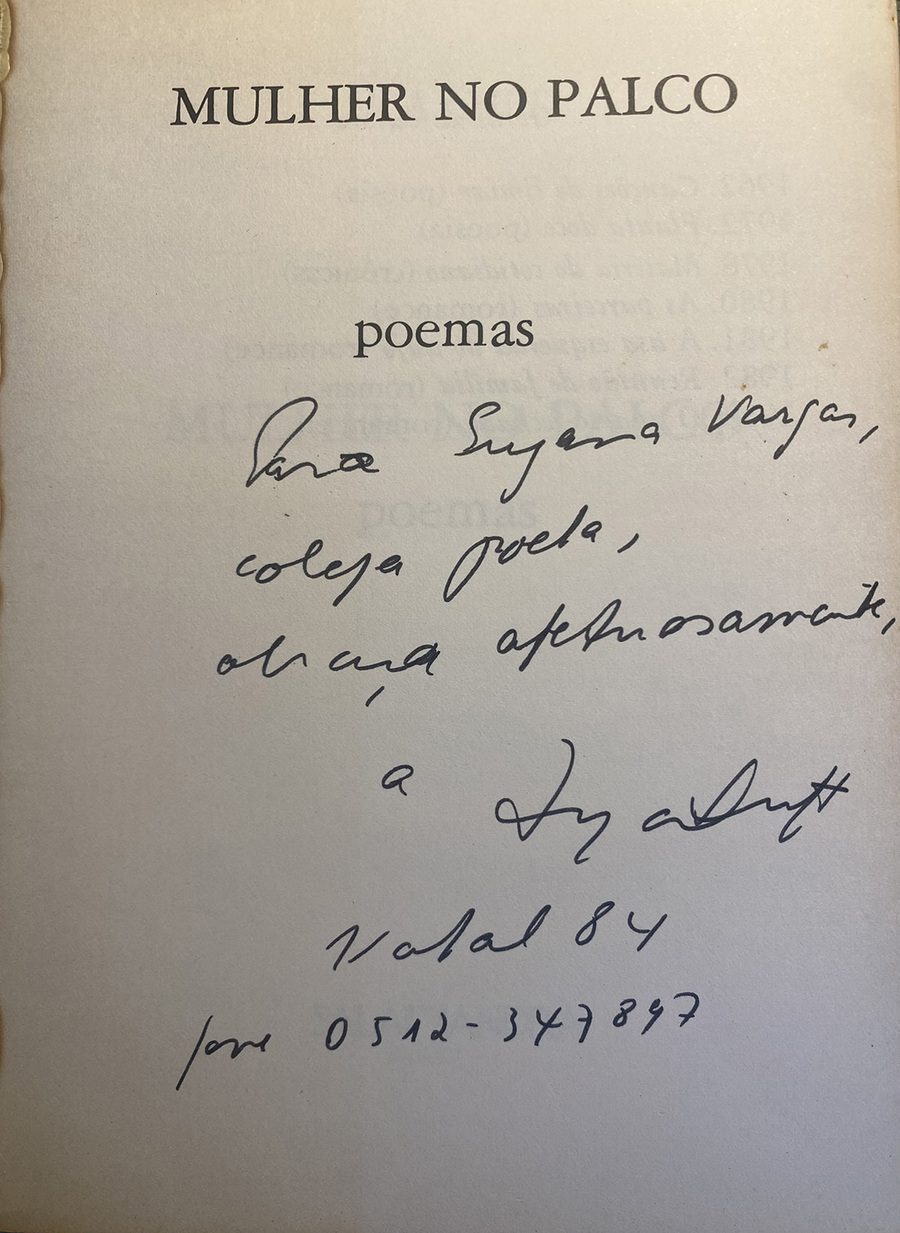 MULHER NO PALCO
poemas
Para Suzana Vargas,
colega poeta,
abraça afetuosamente,
a Lya Luft
Natal 84
fone 0512-347897